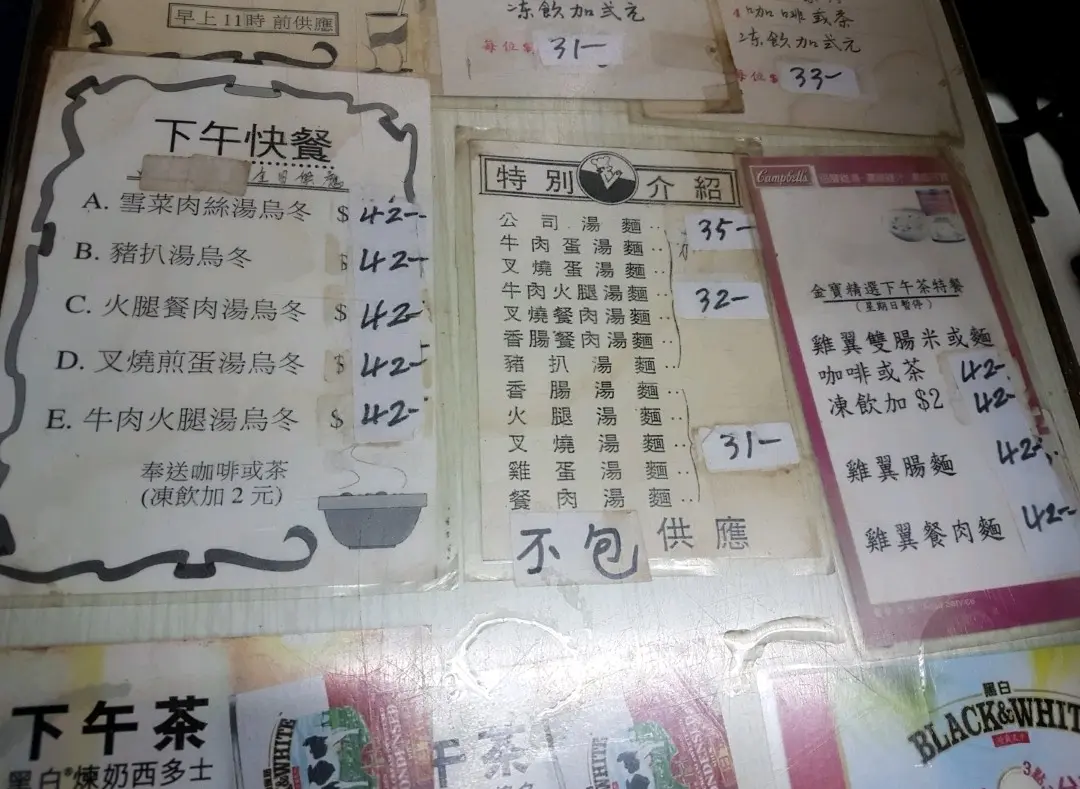 早上11時前供應
凍飲加弍元
每位$ 31-
咖啡或茶
凍飲加弍元
每位$ 33-
下午快餐
全日供應
A. 雪菜肉絲湯烏冬 $ 42-
B. 豬扒湯烏冬 $ 42-
C. 火腿餐肉湯烏冬 $ 42-
D. 叉燒煎蛋湯烏冬 $ 42-
E. 牛肉火腿湯烏冬 $ 42-
奉送咖啡或茶
(凍飲加2元)
特別介紹
公司湯麵.. 35-
牛肉蛋湯麵..
叉燒蛋湯麵..
牛肉火腿湯麵.. 32-
叉燒餐肉湯麵..
香腸餐肉湯麵..
豬扒湯麵
香腸湯麵..
火腿湯麵..
叉燒湯麵.. 31-
雞蛋湯麵..
餐肉湯麵..
不包供應
Campbell's
金寶精選下午茶特餐
(星期日暫停)
雞翼雙腸米或麵
咖啡或茶 42-
凍飲加$2 42-
雞翼腸麵 42-
雞翼餐肉麵 42-
下午茶
黑白®煉奶西多士
午茶
黑白
BLACK&WHIT